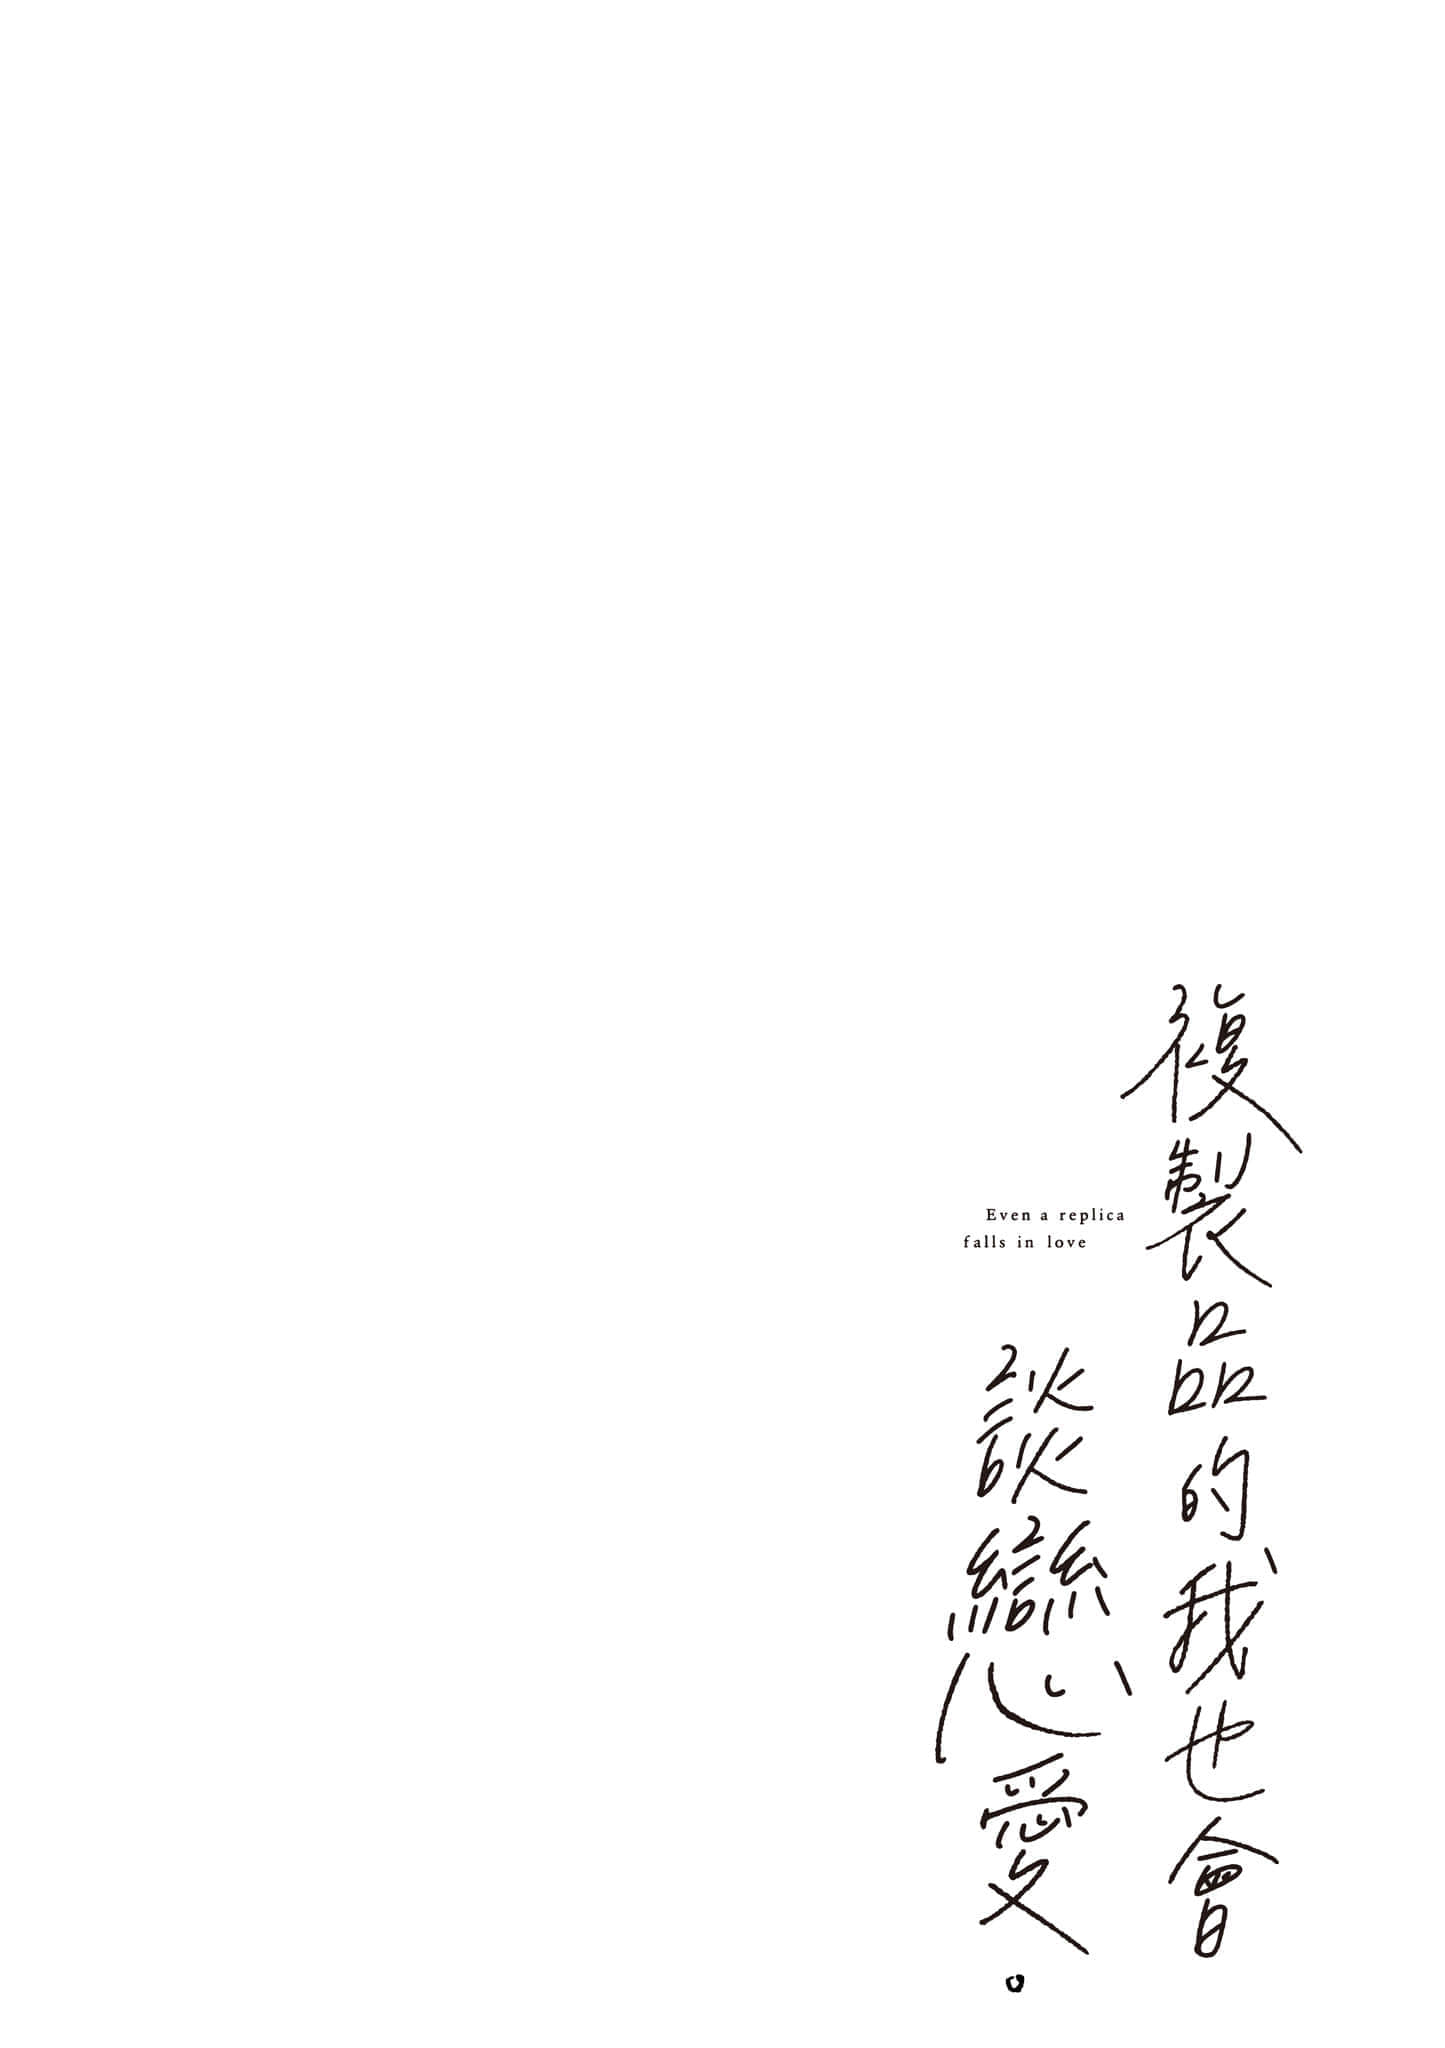 復製品的我也會
談戀愛。
Even a replica
falls in love